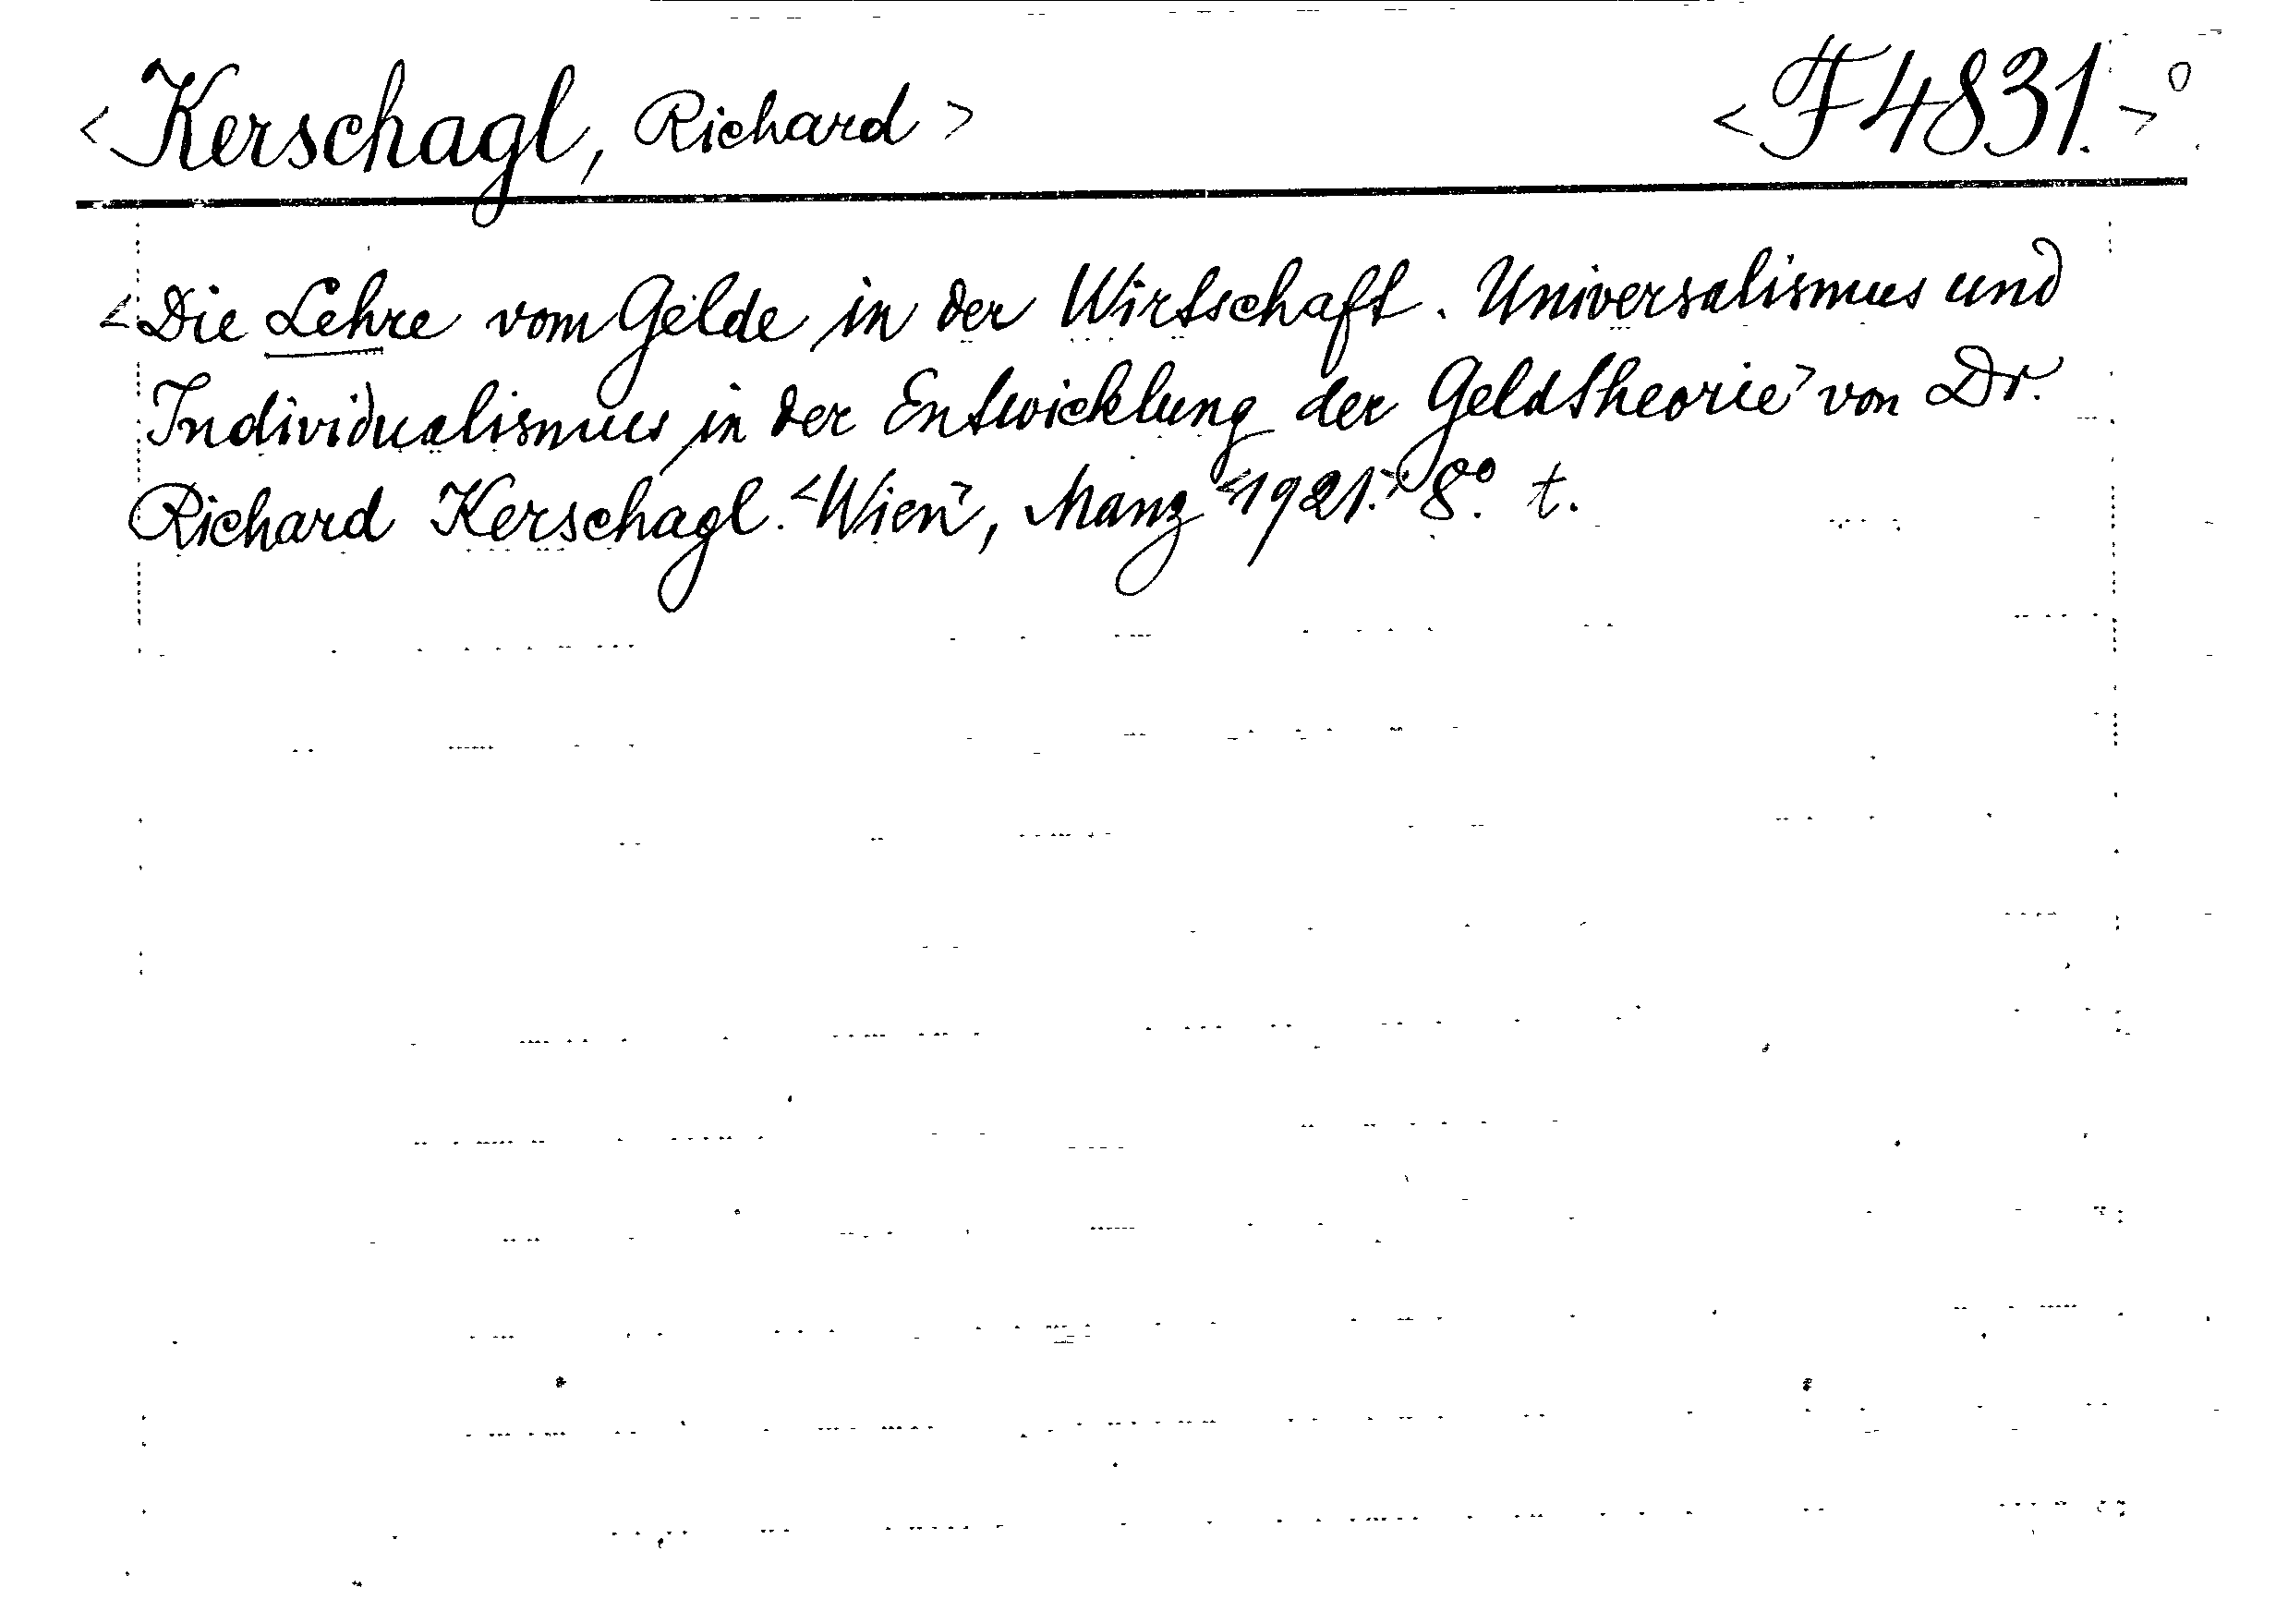 <Kerschagl, Richard> <F 4831.>
<Die Lehre vom Gelde in der Wirtschaft. Universalismus und
Individualismus in der Entwicklung der Geldtheorie> von Dr.
Richard Kerschagl. <Wien>, Manz <1921.> 8°. t.